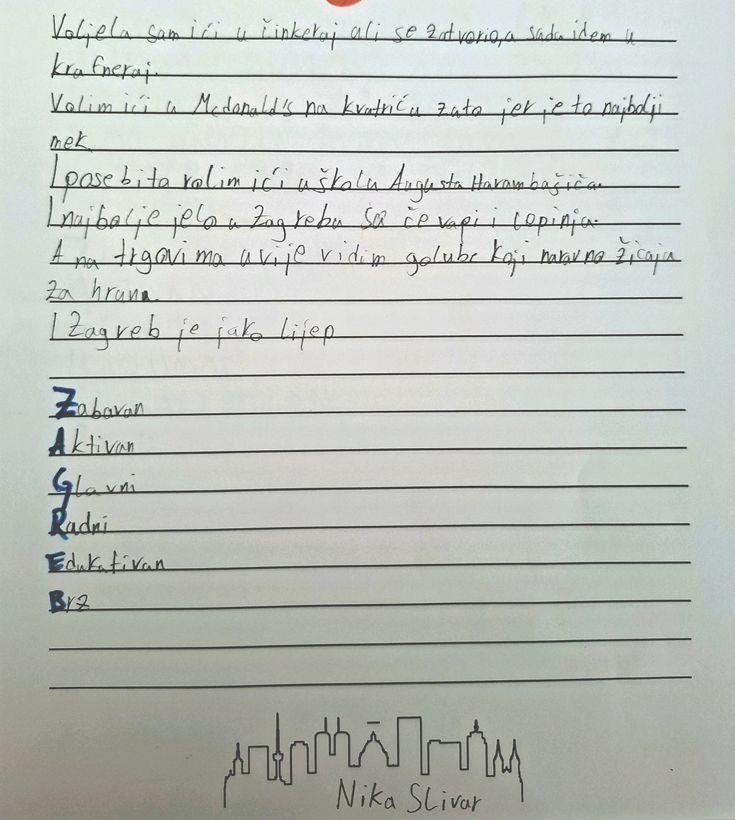 Voljela sam ići u činkeraj ali se zatvorio, a sada idem u
krafneraj.
Volim ići u Mcdonald's na kvatriću zato jer je to najbolji
mek
I posebito volim ići u školu Augusta Harambašića.
I najbolje jelo u Zagrebu su ćevapi i lopinja.
A na trgovima uvije vidim golube koji naravno žicaju
za hranu.
I Zagreb je jako lijep
Zabavan
Aktivan
Glavni
Radni
Edukativan
Brz
Nika Slivar